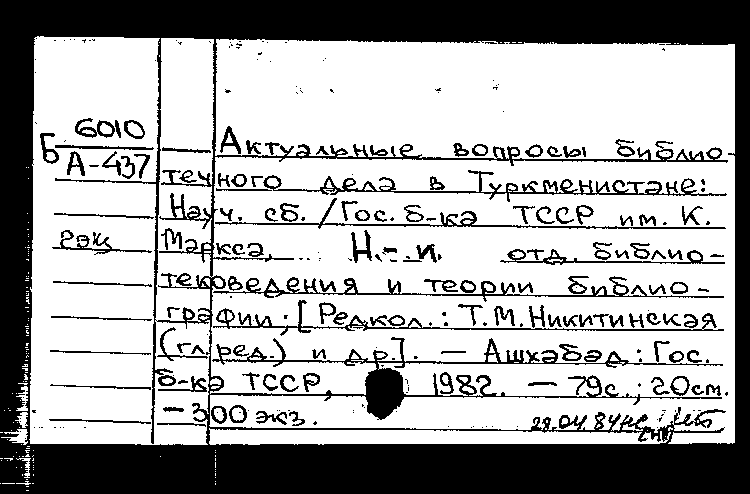 6010
Б А-437
Актуальные вопросы библио-
течного дела в Туркменистане:
Науч. сб. / Гос. б-ка ТССР им. К.
2экз Маркса, Н.-и. отд. библио-
тековедения и теории библио-
графии; [Редкол.: Т.М.Никитинская
(гл. ред.) и др.]. — Ашхабад: Гос.
б-ка ТССР, 1982. — 79с.; 20см.
— 300 экз.
29.04.84